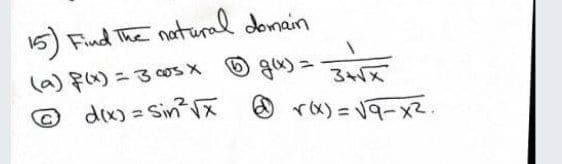 15) Find The natural domain
(a) f(x) = 3 cos x (b) g(x) = 1/(3+√x)
(c) d(x) = Sin²√x (d) r(x) = √9-x².